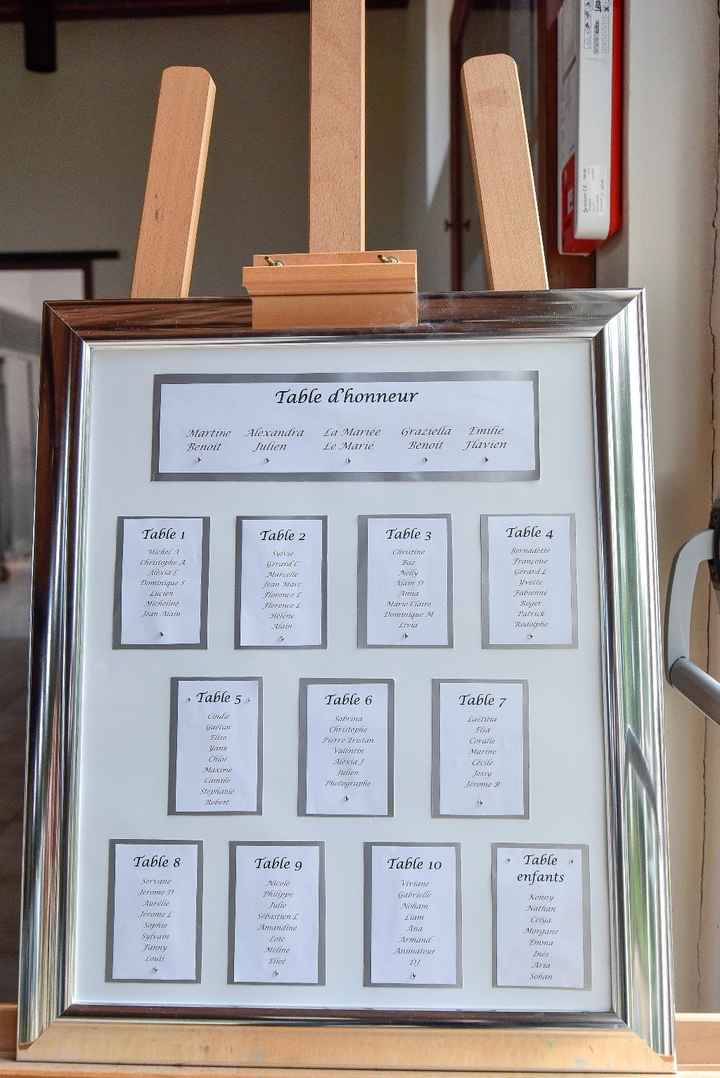 Table d'honneur
Martine Alexandra La Mariée Graziella Emilie
Benoit Julien Le Marié Benoit Flavien
Table 1
Michel A
Christophe A
Alexia L
Dominique S
Lucien
Micheline
Jean Alain
Table 2
Sylvie
Gérard C
Marcelle
Jean Marc
Florence C
Florence L
Hélène
Alain
Table 3
Christine
Baz
Nelly
Alain D
Anna
Marie Claire
Dominique M
Livia
Table 4
Bernadette
Françoise
Gérard L
Yvette
Fabienne
Roger
Patrick
Rodolphe
Table 5
Cindie
Gaëtan
Elise
Yann
Chloé
Maxime
Camille
Stéphanie
Robert
Table 6
Sabrina
Christophe
Pierre Tristan
Valentin
Alexia J
Julien
Photographe
Table 7
Laetitia
Elsa
Coralie
Marine
Cécile
Jossy
Jérome B
Table 8
Servane
Jerome D
Aurélie
Jérome L
Sophie
Sylvain
Fanny
Louis
Table 9
Nicole
Philippe
Julie
Sébastien L
Amandine
Loïc
Méline
Eliot
Table 10
Viviane
Gabrielle
Noham
Liam
Ana
Armand
Animateur
DJ
Table
enfants
Kenny
Nathan
Créya
Morgane
Emma
Inès
Aria
Sohan